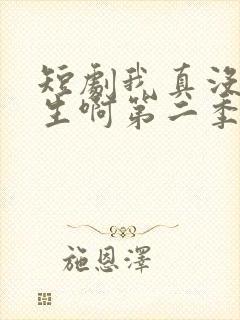 短劇我真没
生啊第二季
施恩澤